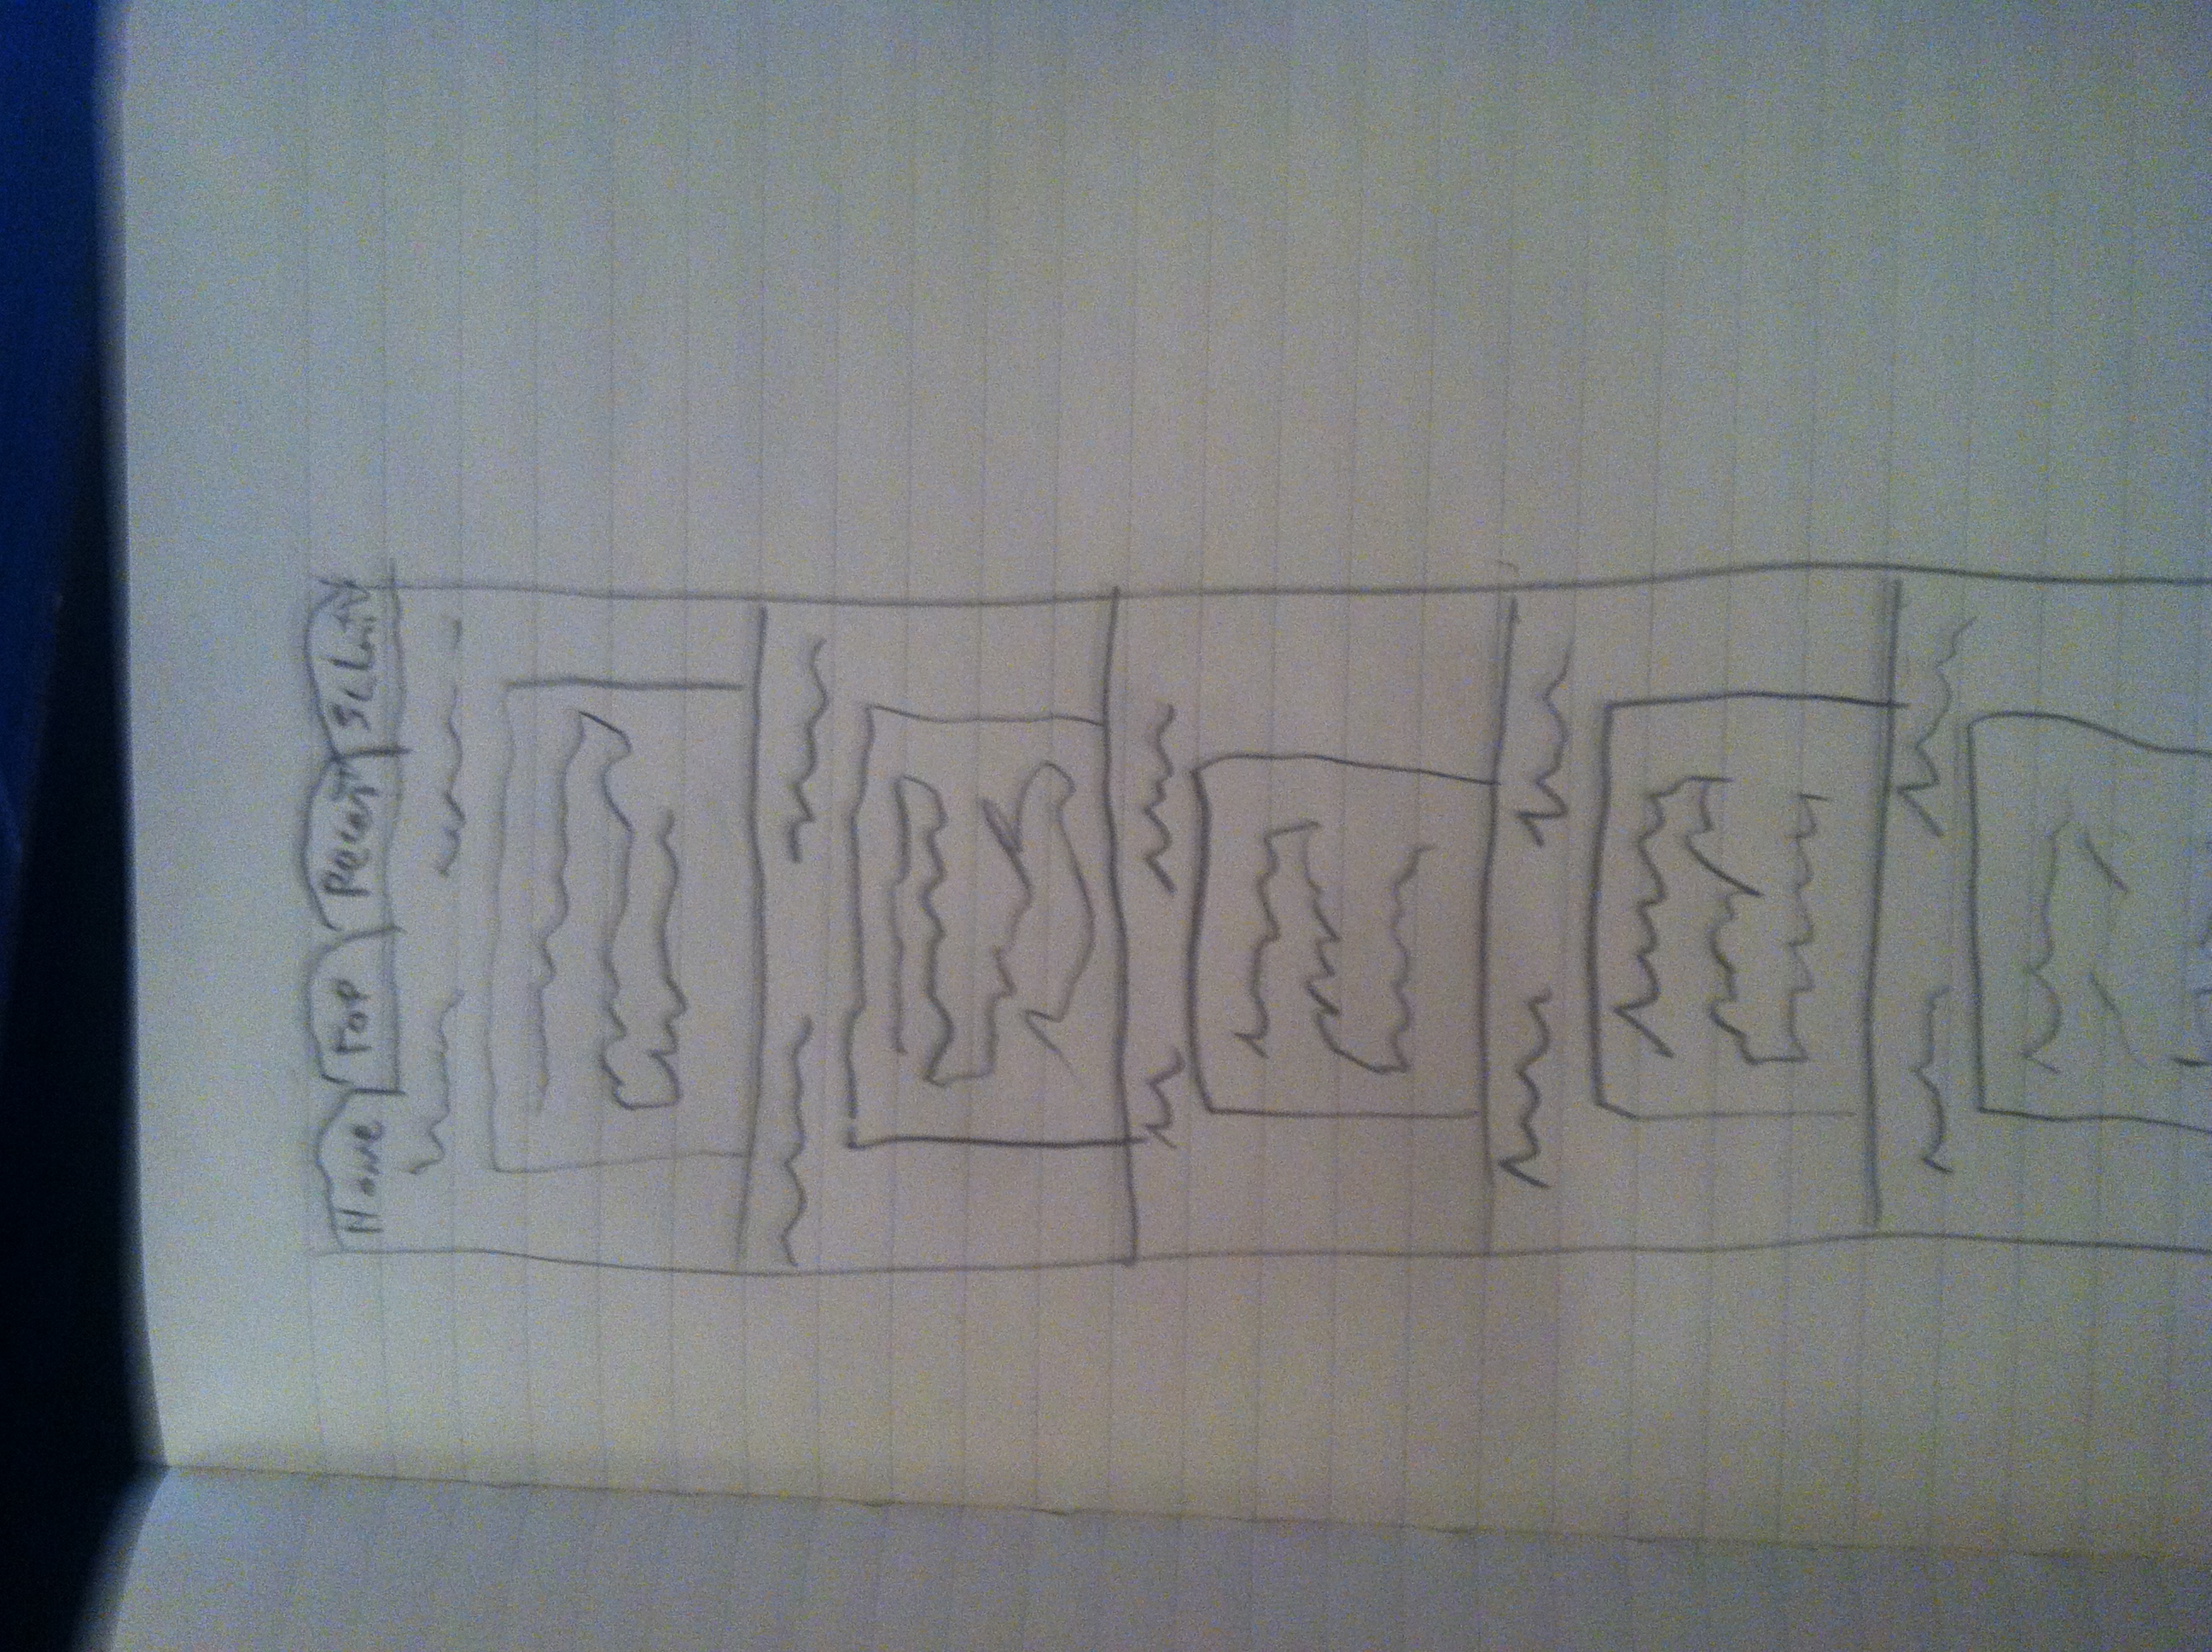 Home Top Recent Submit